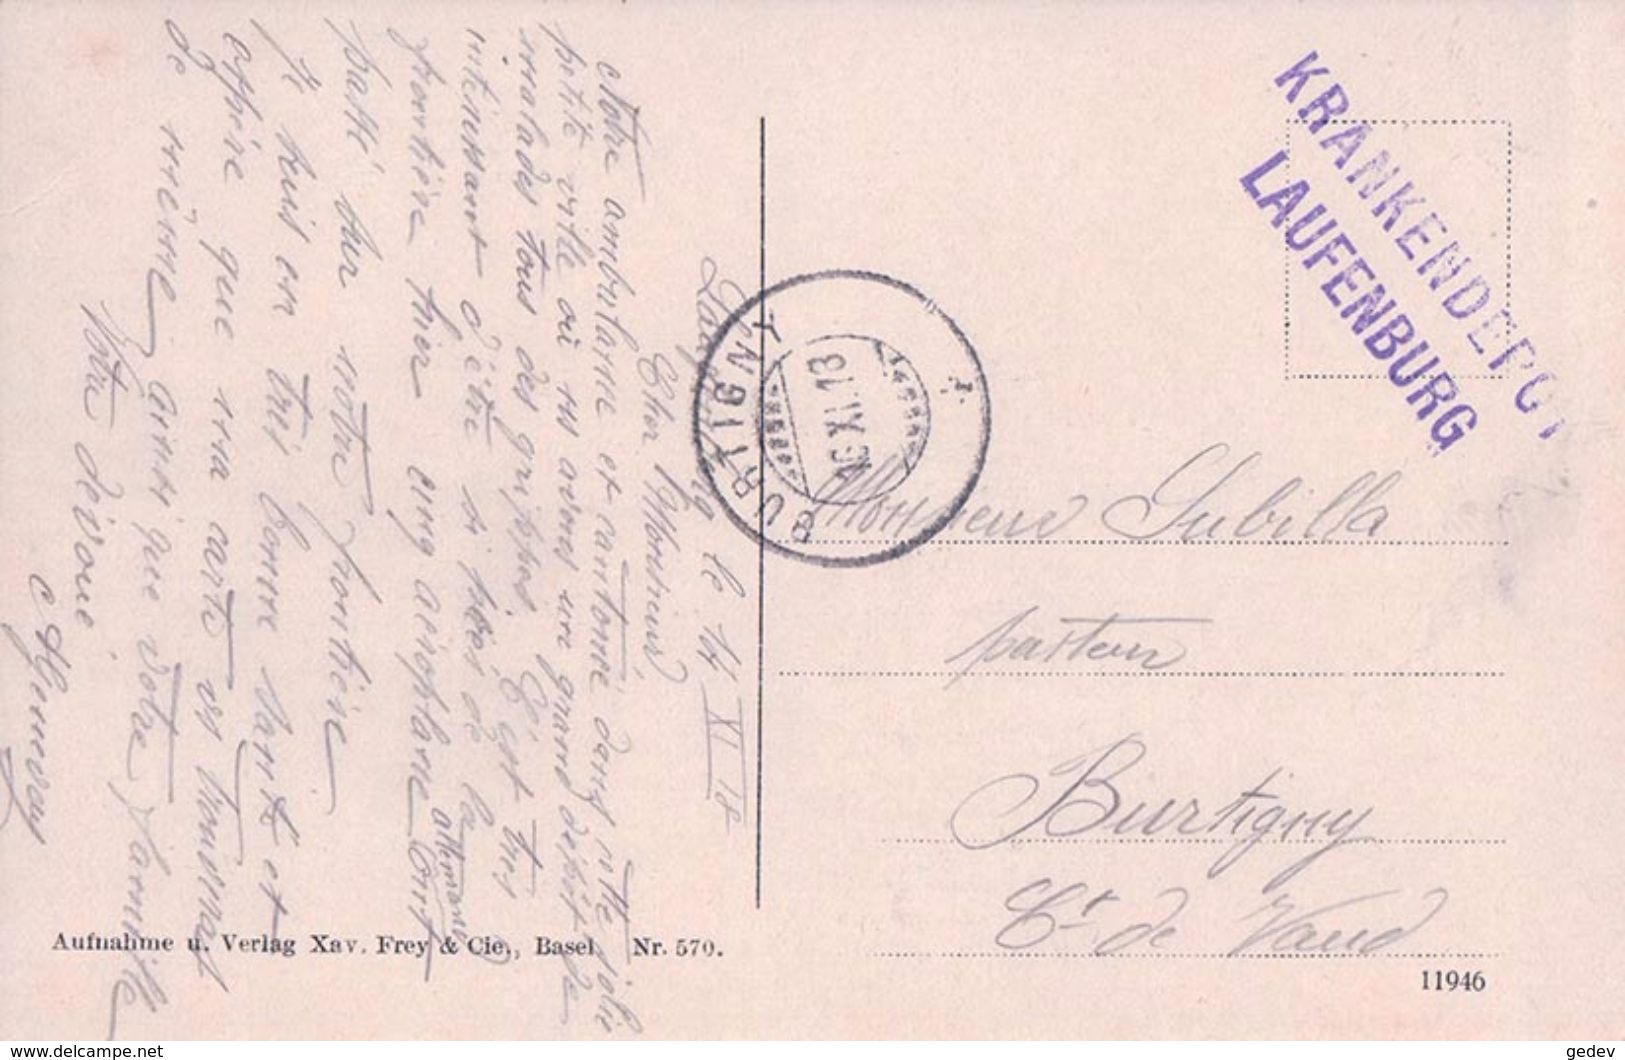 Laufenburg le 14 XI 18
Cher Monsieur
Notre ambulance est cantonnée dans cette jolie
petite ville où nous avons une grand dépôt de
malades tous des grippés. C'est très
intéressant d'être si près de la
frontière hier cinq aéroplane allemand ont
passé sur notre frontière
Je suis en très bonne santé et
espère que ma carte vous trouvera
de même ainsi que votre famille
Votre dévoué
KRANKENDEPOT
LAUFENBURG
BURTIGNY
XI.18
Monsieur Subilia
pasteur
Burtigny
Ct de Vaud
Aufnahme u. Verlag Xav. Frey & Cie., Basel. Nr. 570.
11946
www.delcampe.net
gedev